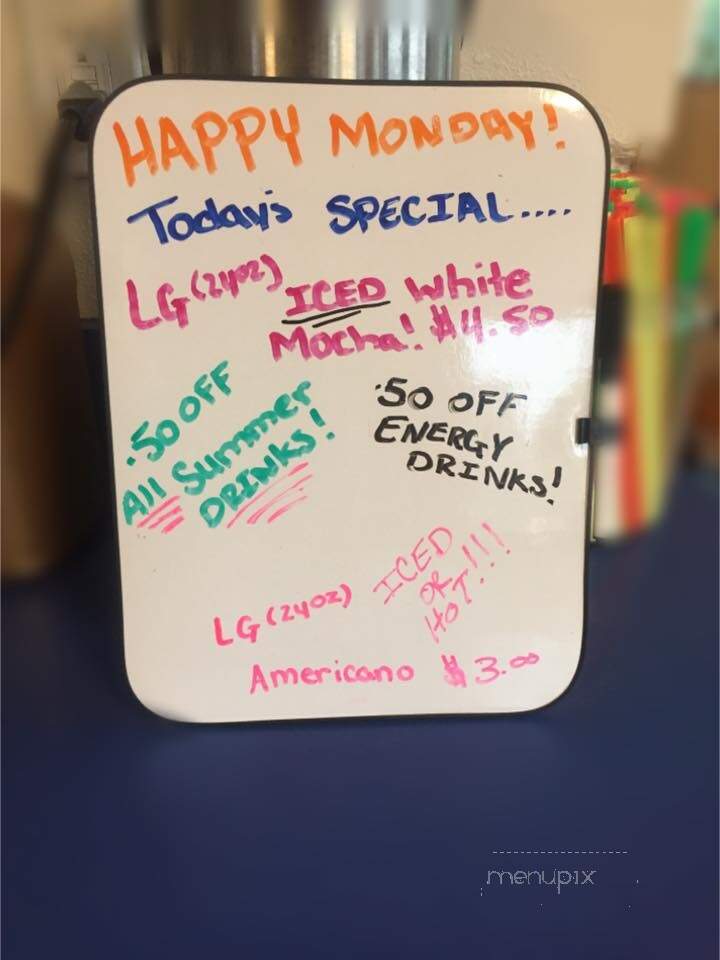 HAPPY MONDAY!
Today's SPECIAL....
LG (24oz) ICED White
Mocha! $4.50
.50 OFF
All Summer
DRINKS!
.50 OFF
ENERGY
DRINKS!
LG (24oz) ICED
OR
HOT!!!
Americano $3.00
menupix